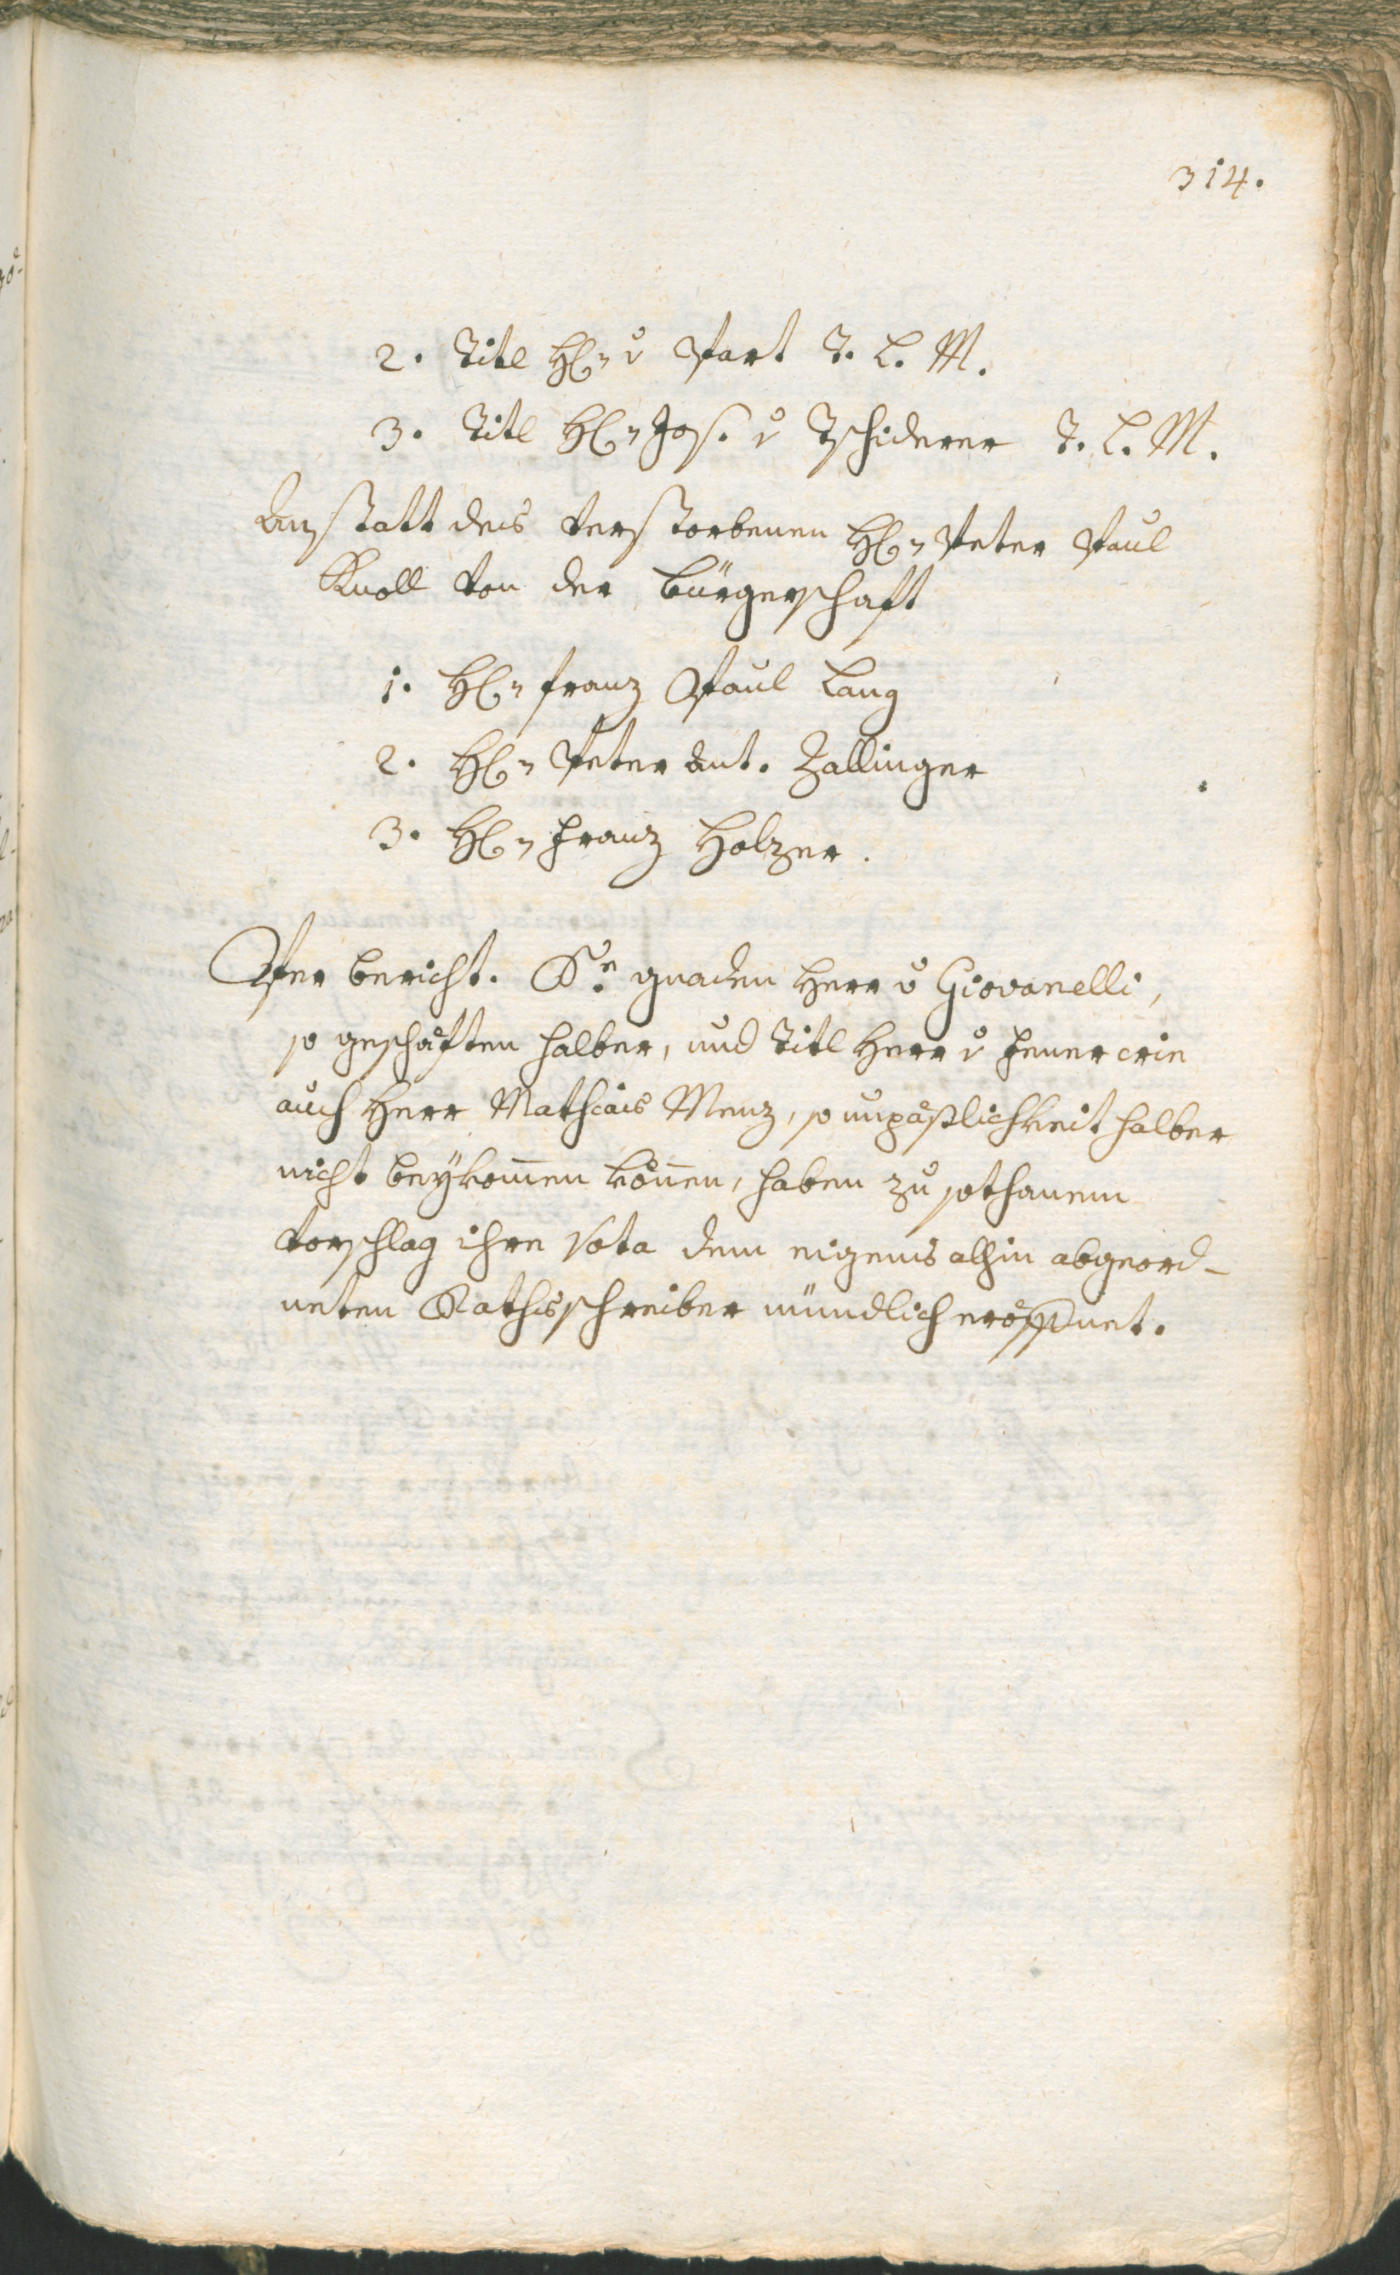 314.
2. Titl H: v Part T. L. M.
3. Titl H: Jos. v Tschiderer T. L. M.
Anstatt des verstorbenen H: Peter Paul
Knoll von der bürgerschaft
1. H: franz Paul Lang
2. H: Peter Ant. Zallinger
3. H: Franz Holzer.
Per bericht. Sr. gnaden Herr v Giovanelli,
so geschäften halber, und Titl Herr v
auch Herr Mathias Menz, so unpäßlichkeit halber
nicht beÿkom̄en kön̄en, haben zu sothanem
vorschlag ihre Vota dem eigens alhin abgeord-
neten Rathsschreiber mündlich eröffnet.